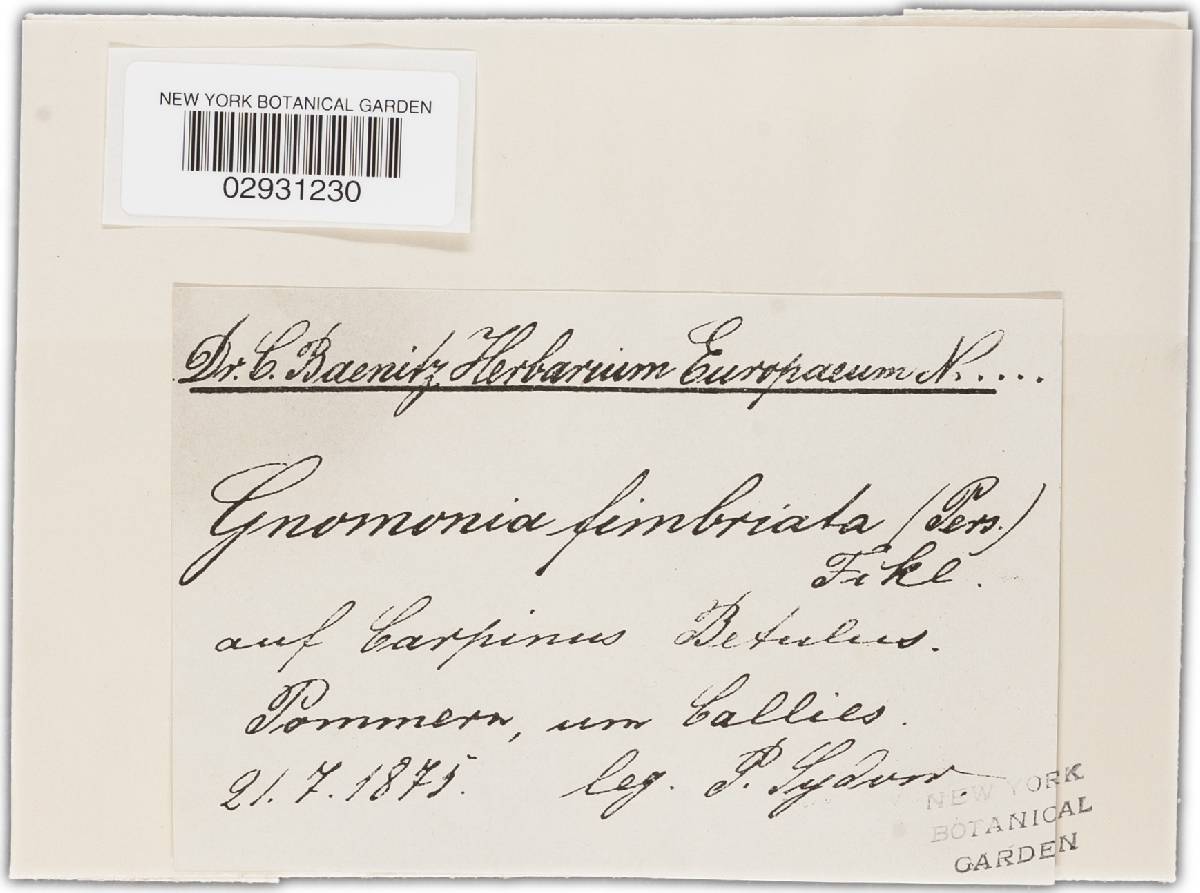 NEW YORK BOTANICAL GARDEN
02931230
Dr. C. Baenitz, Herbarium Europaeum N. ....
Gnomonia fimbriata (Pers.)
Fckl.
auf Carpinus Betulus.
Pommern, um Callies.
21. 7. 1875. leg. P. Sydow.
NEW YORK
BOTANICAL
GARDEN